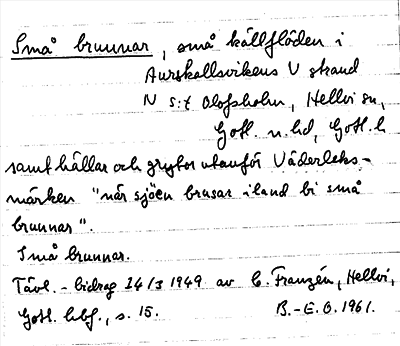 Små brunnar, små källflöden i
Aurskallsvikens V strand
N s:t Olofsholm, Hellvi sn,
Gotl. n. hd, Gotl. l.
samt hällar och grytor utanför Väderleks-
märken "när sjöen brusar iland bi små
brunnar".
Små brunnar.
Tävl.-bidrag 14/3 1949 av C. Franzén, Hellvi,
Gotl. hbf., s. 15. B.-E.O. 1961.